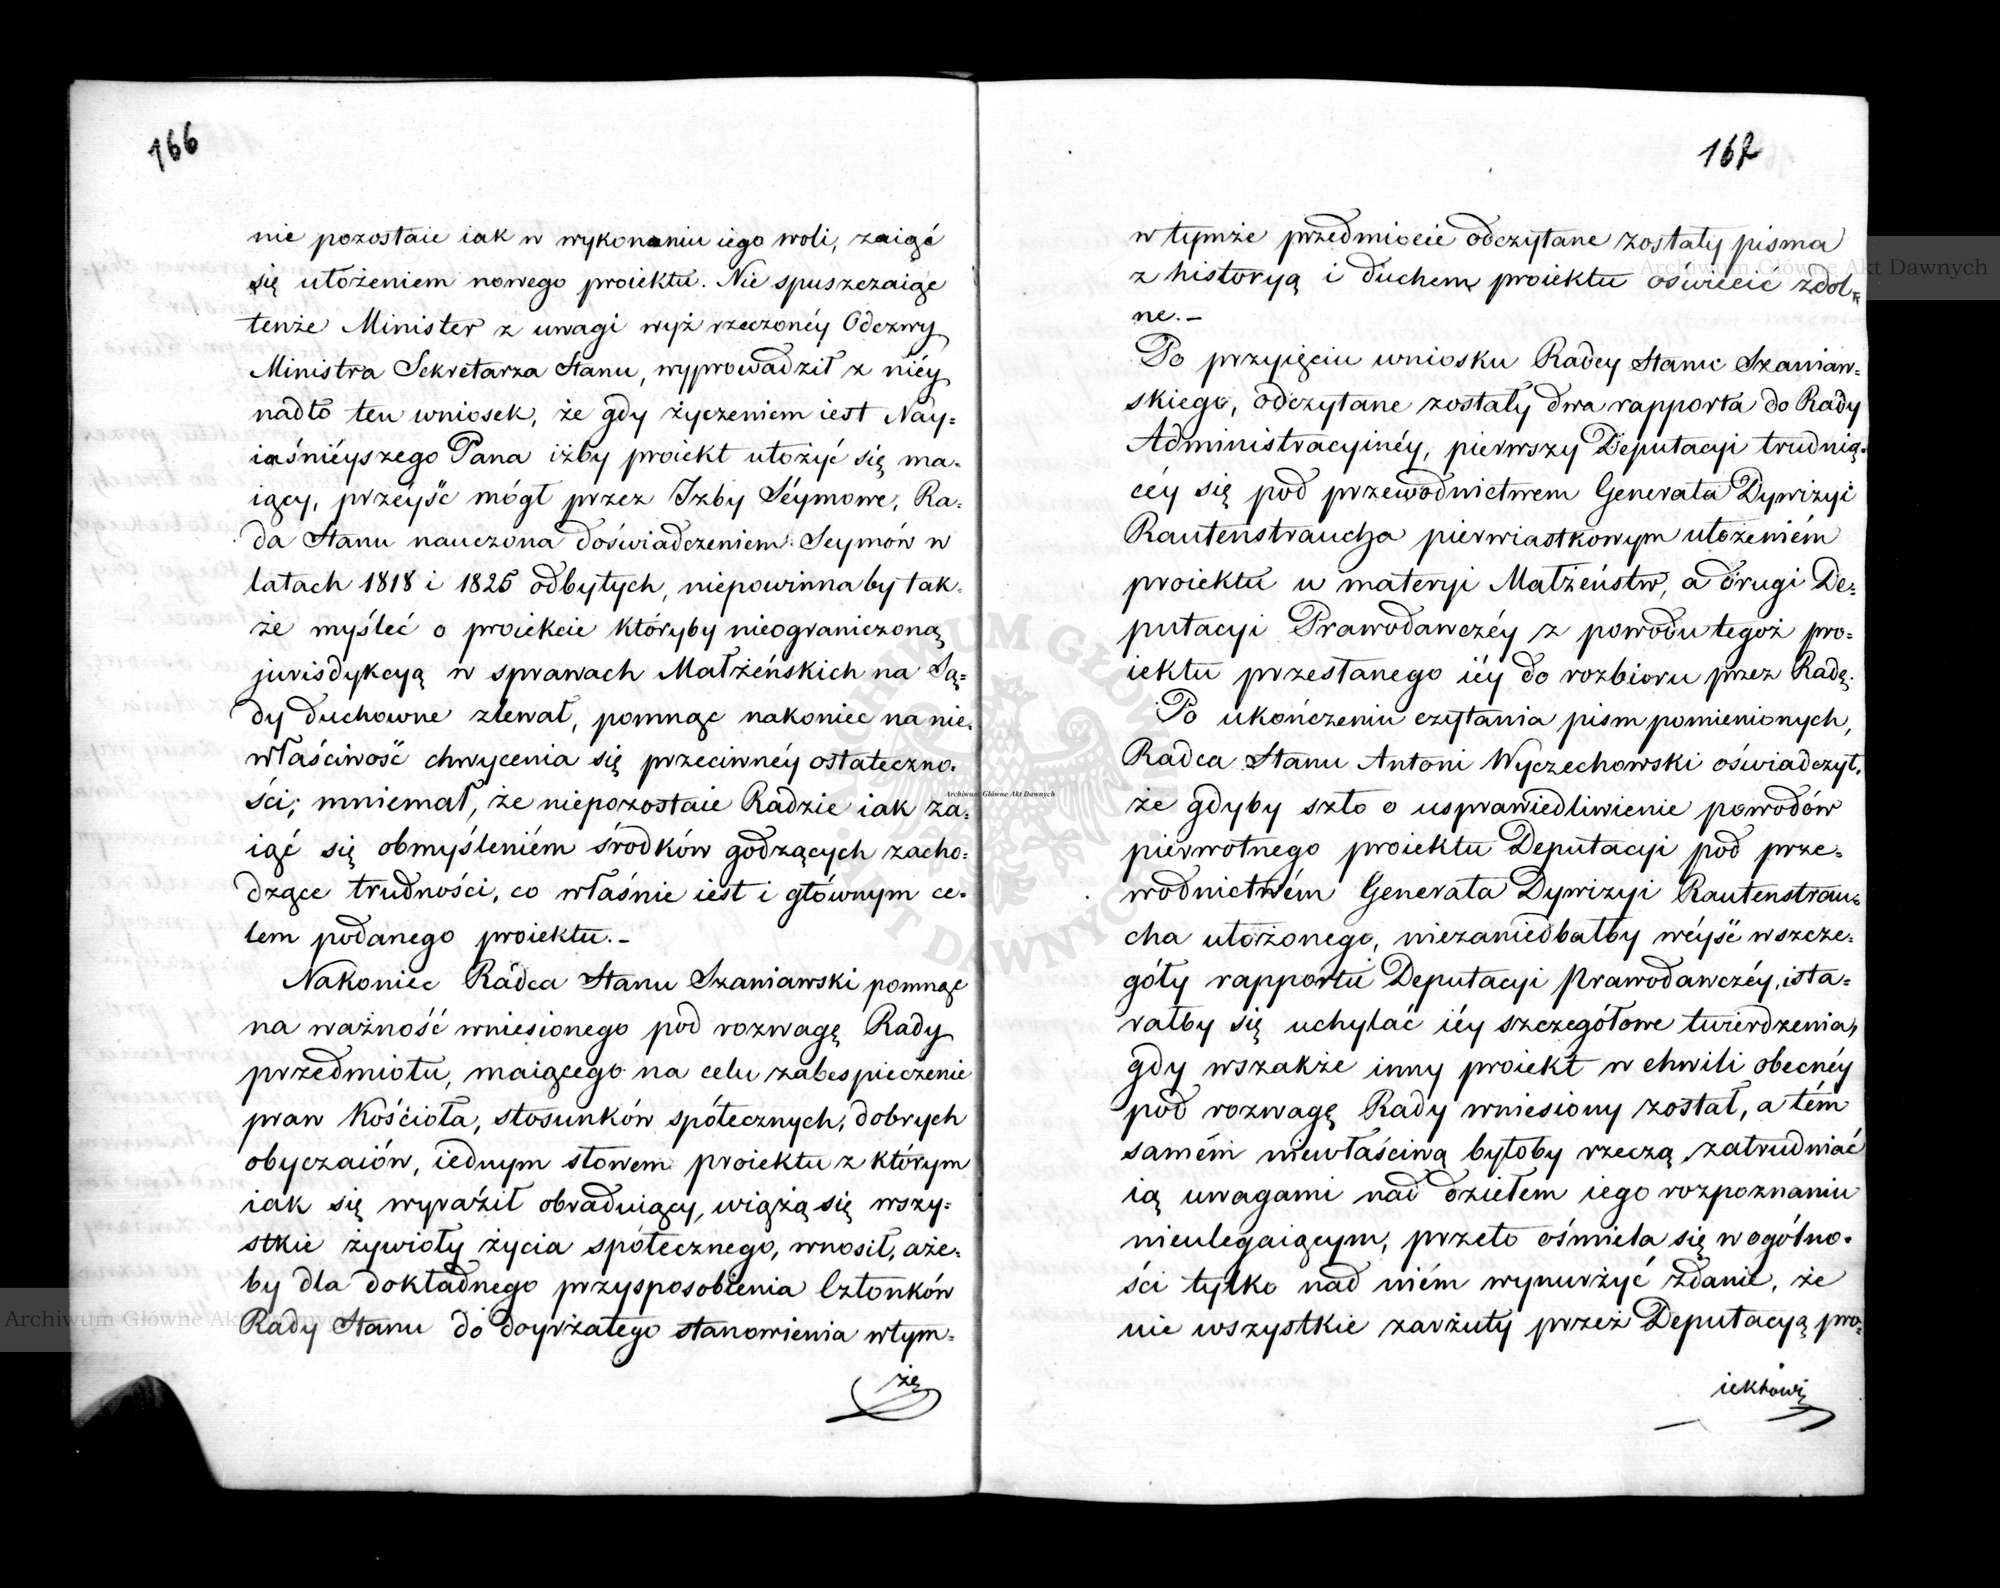 166
nie pozostaie iak w wykonaniu iego woli, zaiąć
się ułożeniem nowego proiektu. Nie spuszczaiąc
tenże Minister z uwagi wyż rzeczonéy Odezwy
Ministra Sekretarza Stanu, wyprowadził z niéy
nadto ten wniosek, że gdy życzeniem iest Nay-
iaśniéyszego Pana iżby proiekt ułożyć się ma-
iący, przéyść mógł przez Izby Séymowe, Ra-
da Stanu nauczona doświadczeniem Seymów w
latach 1818 i 1825 odbytych, niepowinna by tak-
że myśleć o proiekcie któryby nieograniczoną
jurisdykcyą w sprawach Małżeńskich na Są-
dy duchowne zlewał, pomnąc nakoniec na nie-
właściwość chwycenia się przeciwnéy ostateczno-
ści; mniemał, że niepozostaie Radzie iak za-
iąć się obmyśleniém środków godzących zacho-
dzące trudności, co właśnie iest i głównym ce-
lem podanego proiektu.-
Nakoniec Radca Stanu Szaniawski pomnąc
na ważność wniesionego pod rozwagę Rady
przedmiotu, maiącego na celu zabespieczenie
praw Kościoła, stosunków spółecznych, dobrych
obyczaiów, iednym słowem proiektu z którym
iak się wyraził obraduiący, wiążą się wszy-
stkie żywioły życia spółecznego, wnosił, aże-
by dla dokładnego przysposobienia Członków
Rady Stanu do doyrzałego stanowienia wtym-
że
167
w tymże przedmiocie odczytane zostały pisma
z historyą i duchem proiektu oświecić zdol-
ne.-
Po przyięciu wniosku Radcy Stanu Szaniaw-
skiego, odczytane zostały dwa rapporta do Rady
Administracyinéy, pierwszy Deputacyi trudnią-
céy się pod przewodnictwem Generała Dywizyi
Rautenstraucha pierwiastkowym ułożeniém
proiektu w materyi Małżeństw, a drugi De-
putacyi Prawodawczéy z powodu tegoż pro-
iektu przesłanego iéy do rozbioru przez Radę.
Po ukończeniu czytania pism pomienionych,
Radca Stanu Antoni Wyczechowski oświadczył,
że gdyby szło o usprawiedliwienie powodów
pierwotnego proiektu Deputacyi pod prze-
wodnictwém Generała Dywizyi Rautenstrau-
cha ułożonego, niezaniedbałby wéyść w szcze-
góły rapportu Deputacyi Prawodawczéy, i sta-
rałby się uchylać iéy szczegółowe twierdzenia,
gdy wszakże inny proiekt w chwili obecnéy
pod rozwagę Rady wniesiony został, a tém
samém niewłaściwą byłoby rzeczą zatrudniać
ią uwagami nad dziełem iego rozpoznaniu
nieulegaiącym, przeto ośmiela się w ogólno-
ści tylko nad niém wynurzyć zdanie, że
nie wszystkie zarzuty przez Deputacyą pro-
iektowi
Archiwum Główne Akt Dawnych
Archiwum Główne Akt Dawnych
Archiwum Główne Akt Dawnych
ARCHIWUM GŁÓWNE AKT DAWNYCH